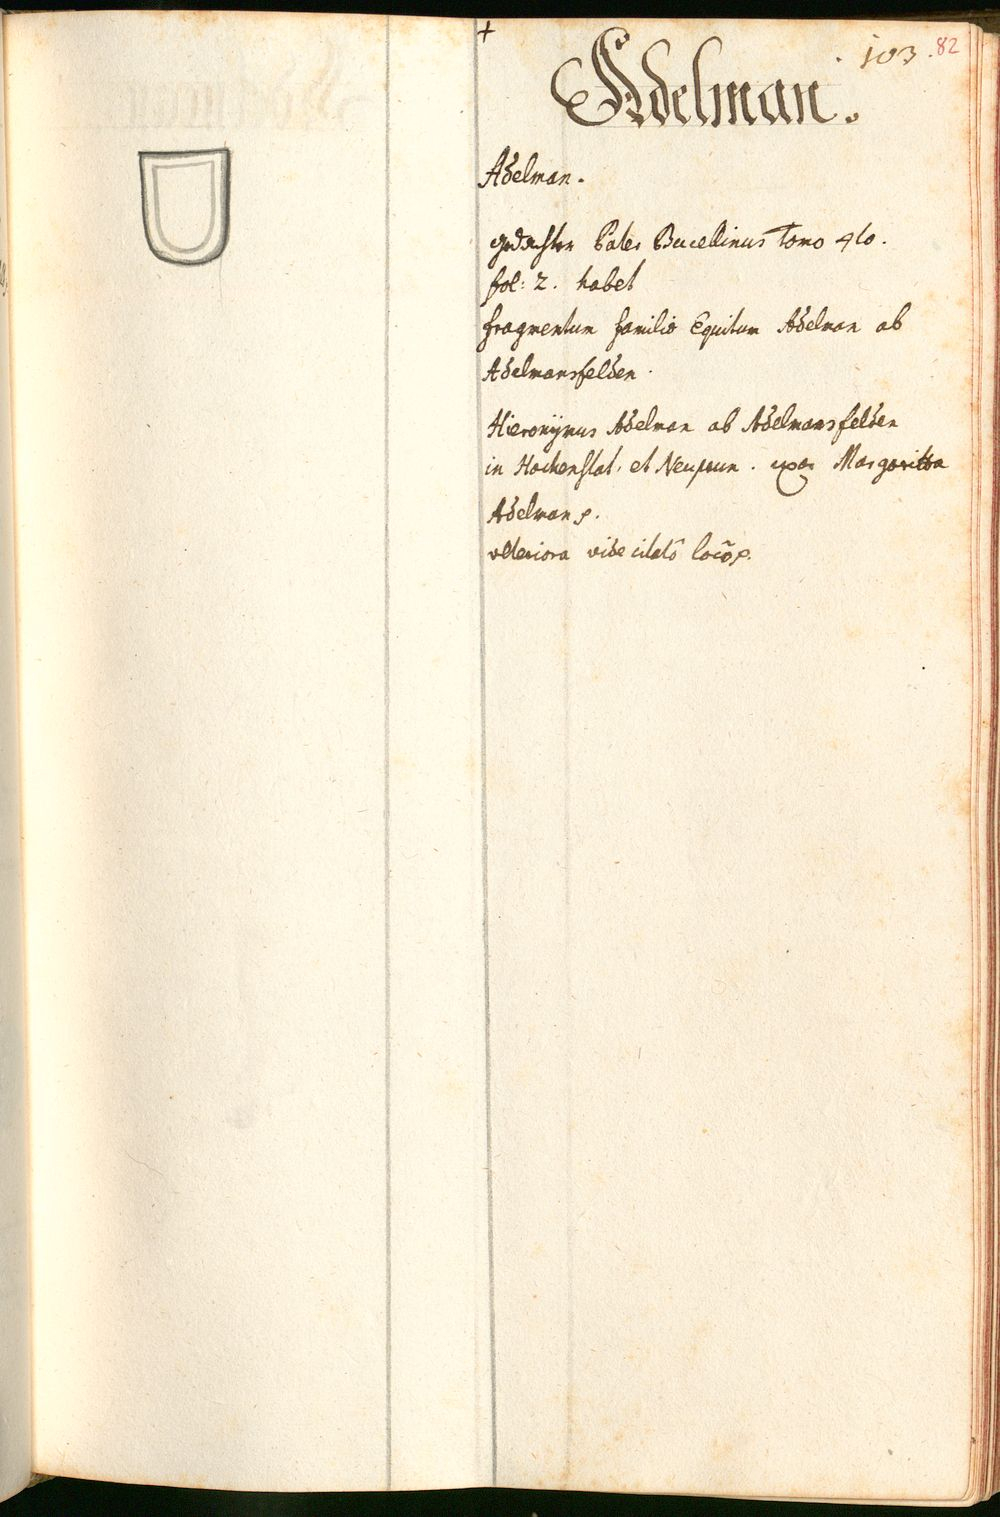 103. 82
Adelman.
Adelman.
gedachter Pater Bucellinus Tomo 4to.
fol: 2. habet
fragmentum familiæ Equitum Adelman ab
Adelmansfelden.
Hieronÿmus Adelman ab Adelmansfelden
in Hochenstat. et Neuprun. uxor Margaritta
Adelman p.
ulteriora vide citatô locô p.